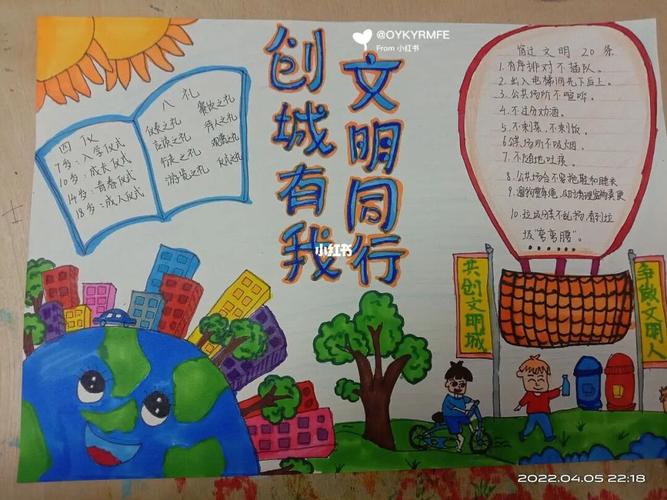 @OYKYRMFE
From 小红书
创城有我
文明同行
四仪
7岁:入学仪式
10岁:成长仪式
14岁:青春仪式
18岁:成人仪式
八礼
仪表之礼 餐饮之礼
言谈之礼 待人之礼
行走之礼 观赏之礼
游览之礼 仪式之礼
宿迁文明20条
1.有序排对不插队。
2.出入电梯间先下后上。
3.公共场所不喧哗。
4.不过分劝酒。
5.不剩菜、不剩饭。
6.公共场所不吸烟。
7.不随地吐痰。
8.公共场合不穿拖鞋和睡衣
9.遛狗要牵绳,
10.垃圾分类不乱扔,看到垃
圾"弯弯腰"。
......
小红书
共创文明城
争做文明人
2022.04.05 22:18